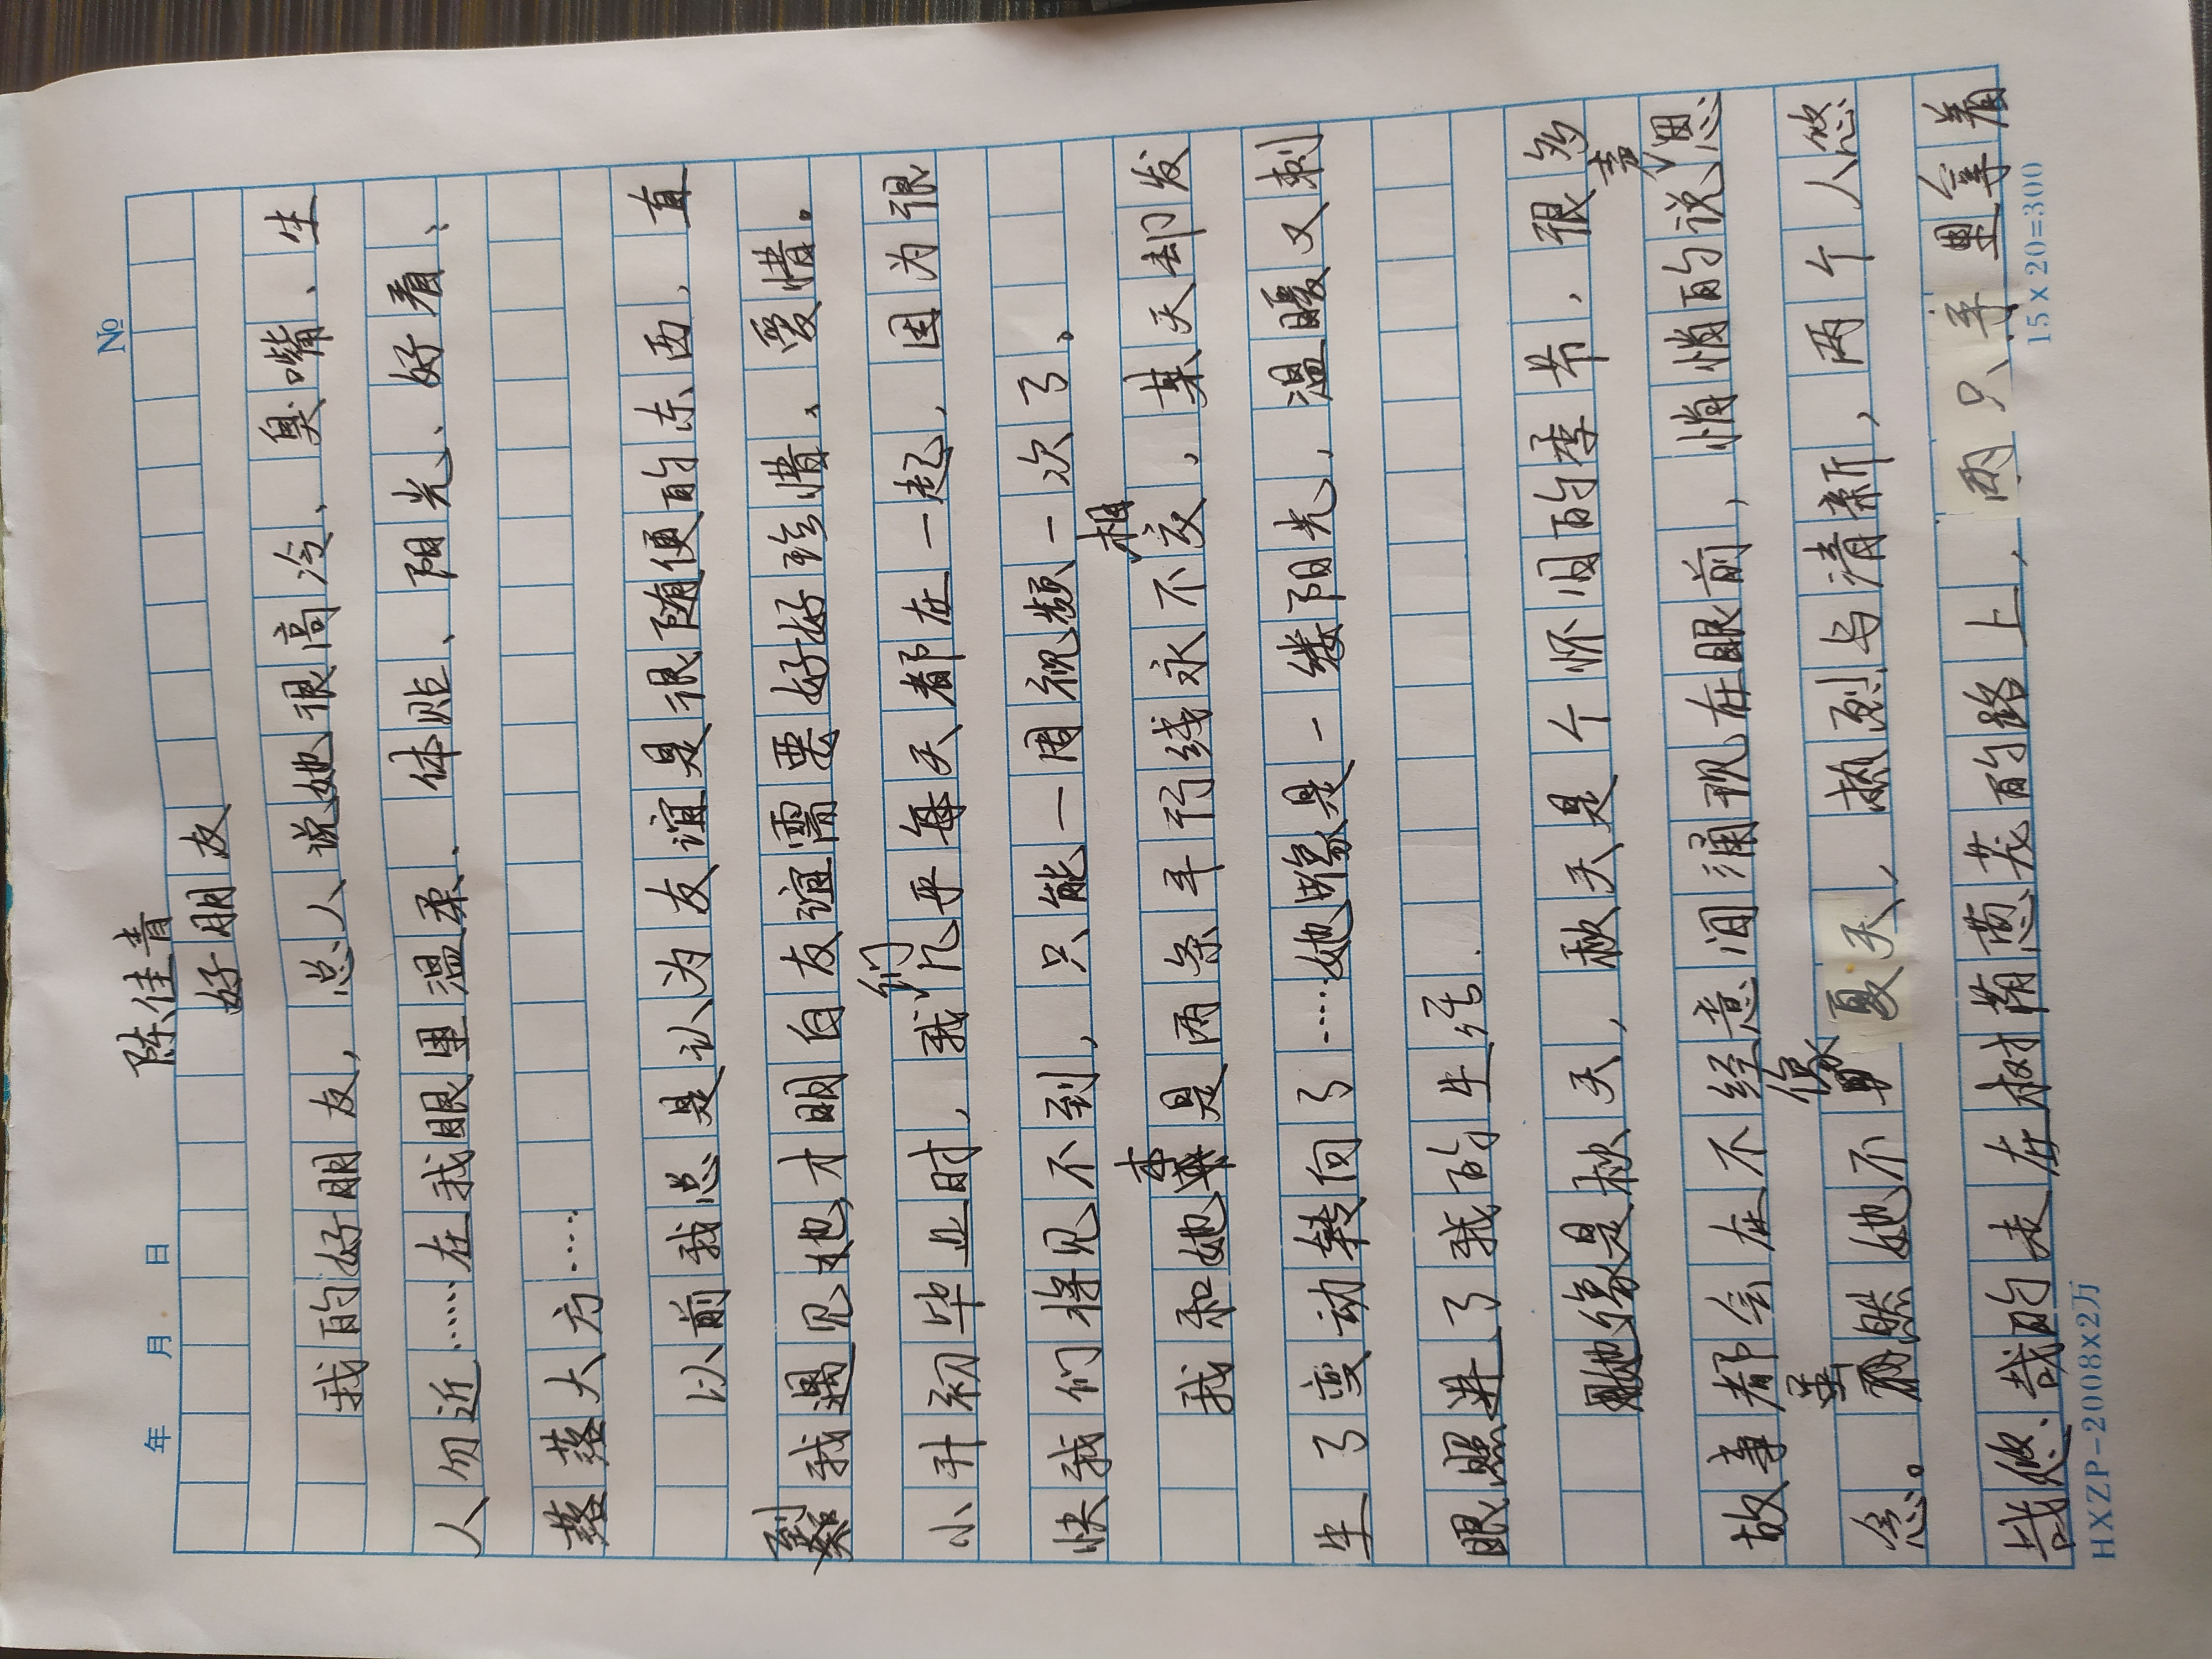 年 月 日
№
陈佳青
好朋友
我的好朋友，总人说她很高冷、臭嘴、生
人勿近……在我眼里温柔、体贴、阳光、好看、
落落大方……
以前我总是认为友谊是很随便的东西，直
到我遇见她，才明白友谊需要好好珍惜、爱惜。
小升初毕业时，我们几乎每天都在一起，因为很
快我们将见不到，只能一周视频一次了。
我和她本是两条平行线永不相交，某天却发
生了变动转向了……她像是一缕阳光，温暖又刺
眼照进了我的生活.
她像是秋天，秋天是个怀旧的季节，很多
故事都会在不经意间涌现在眼前，悄悄的说声思
念。虽然她不像夏天，热烈与清新，两个人悠
哉悠哉的走在树荫葱茏的路上，两只手里拿着
HXZP-2008X2万
15×20=300